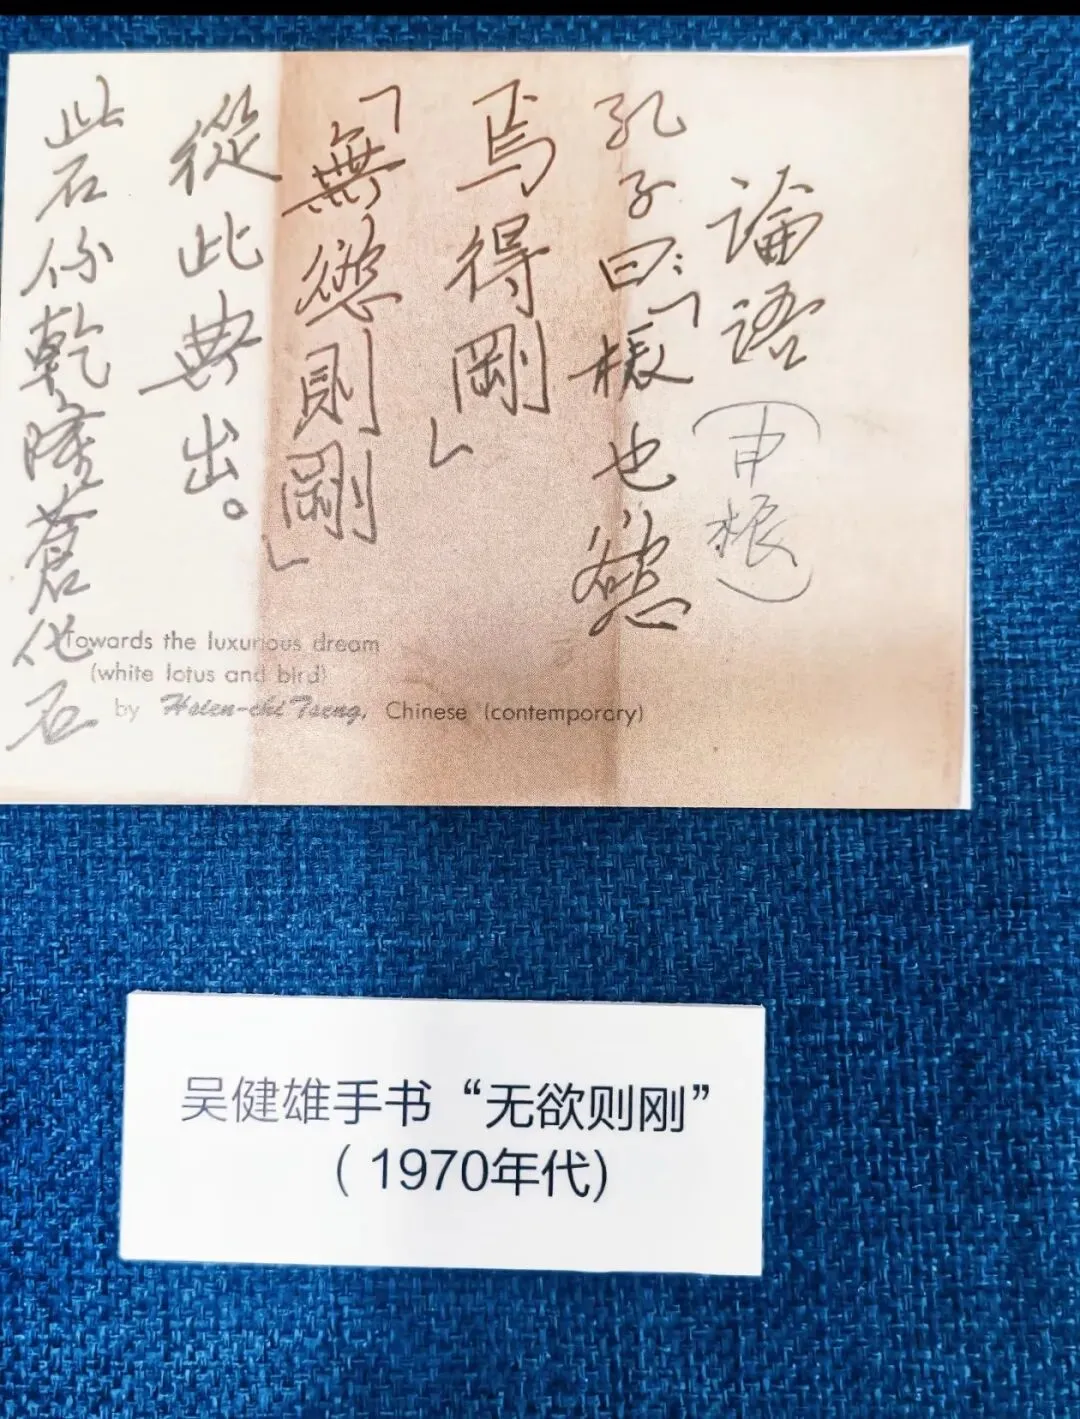 論語（申棖）
孔子曰：「棖也慾
焉得剛」
「無慾則剛」
從此典出。
此石你乾隆蒼化石
Towards the luxurious dream
(white lotus and bird)
by Hsien-chi Tseng, Chinese (contemporary)
吴健雄手书“无欲则刚”
（1970年代）